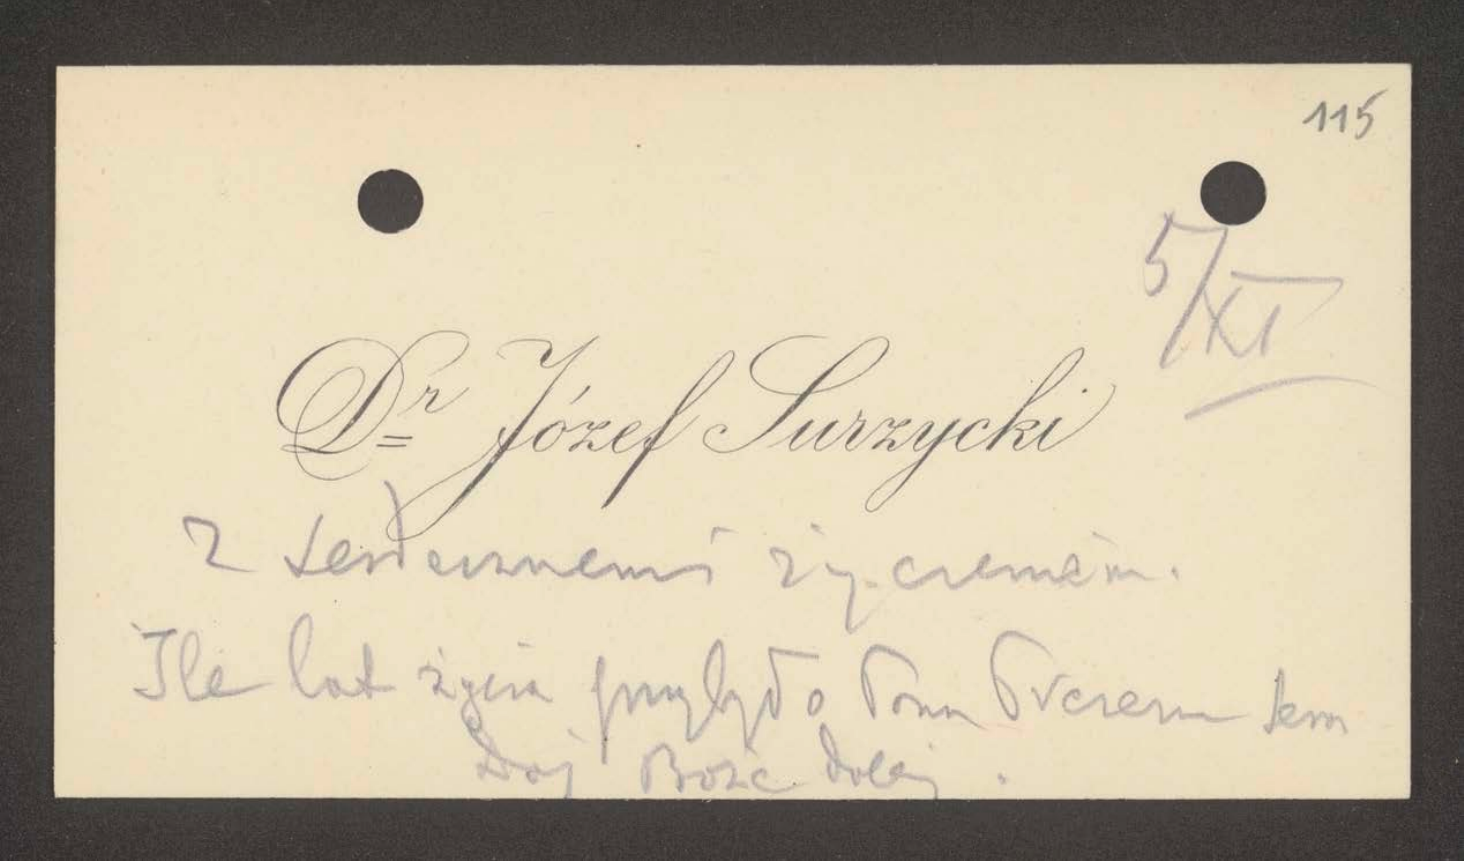 115
5/XI
Dr Józef Surzycki
z serdecznemi życzeniami.
Ile lat życia Panu
Daj Boże dalej.